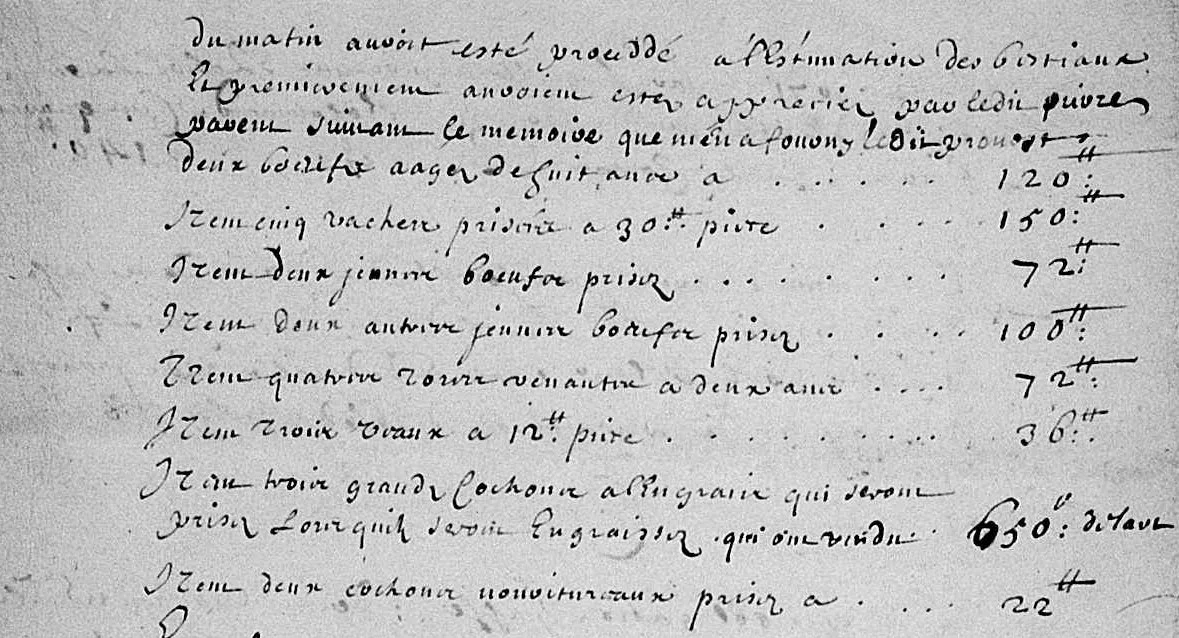 du matin auvoit esté proceddé a l'Estimation des bestiaux
Et premierement auroient estez appreciez par ledit
parent suivant le memoire que m'en a fourny ledit prouost
deux boeufs aagez de huit ans a . . . . . . 120:₶
Item cinq vaches prisées a 30:₶ piece . . . . 150:₶
Item deux jeunes boeufs prisez . . . . . . . . 72:₶
Item deux autres jeunes boeufs prisez . . . . 100:₶
Item quatre tores venantes a deux ans . . . . 72:₶
Item trois veaux a 12:₶ piece . . . . . . . . . 36:₶
Item trois grands Cochons a l'Engrais qui seront
prisez Lors quils seront Engraissez qui ont vendu 650:
Item deux cochons nouritureaux prisez a . . . . 22₶